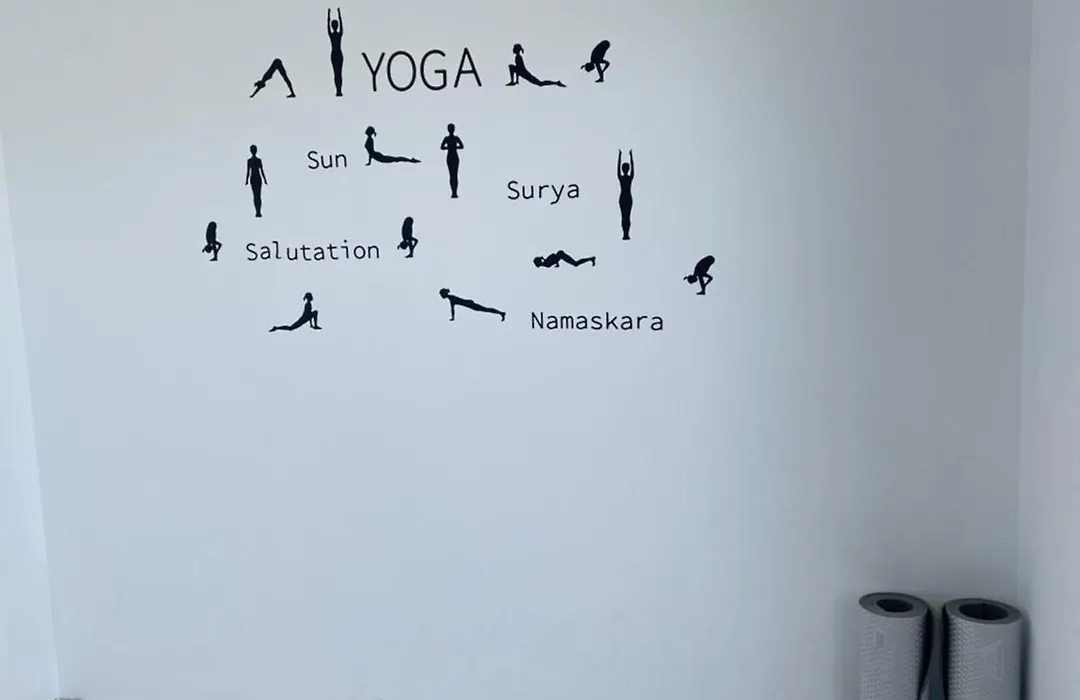 YOGA
Sun
Surya
Salutation
Namaskara